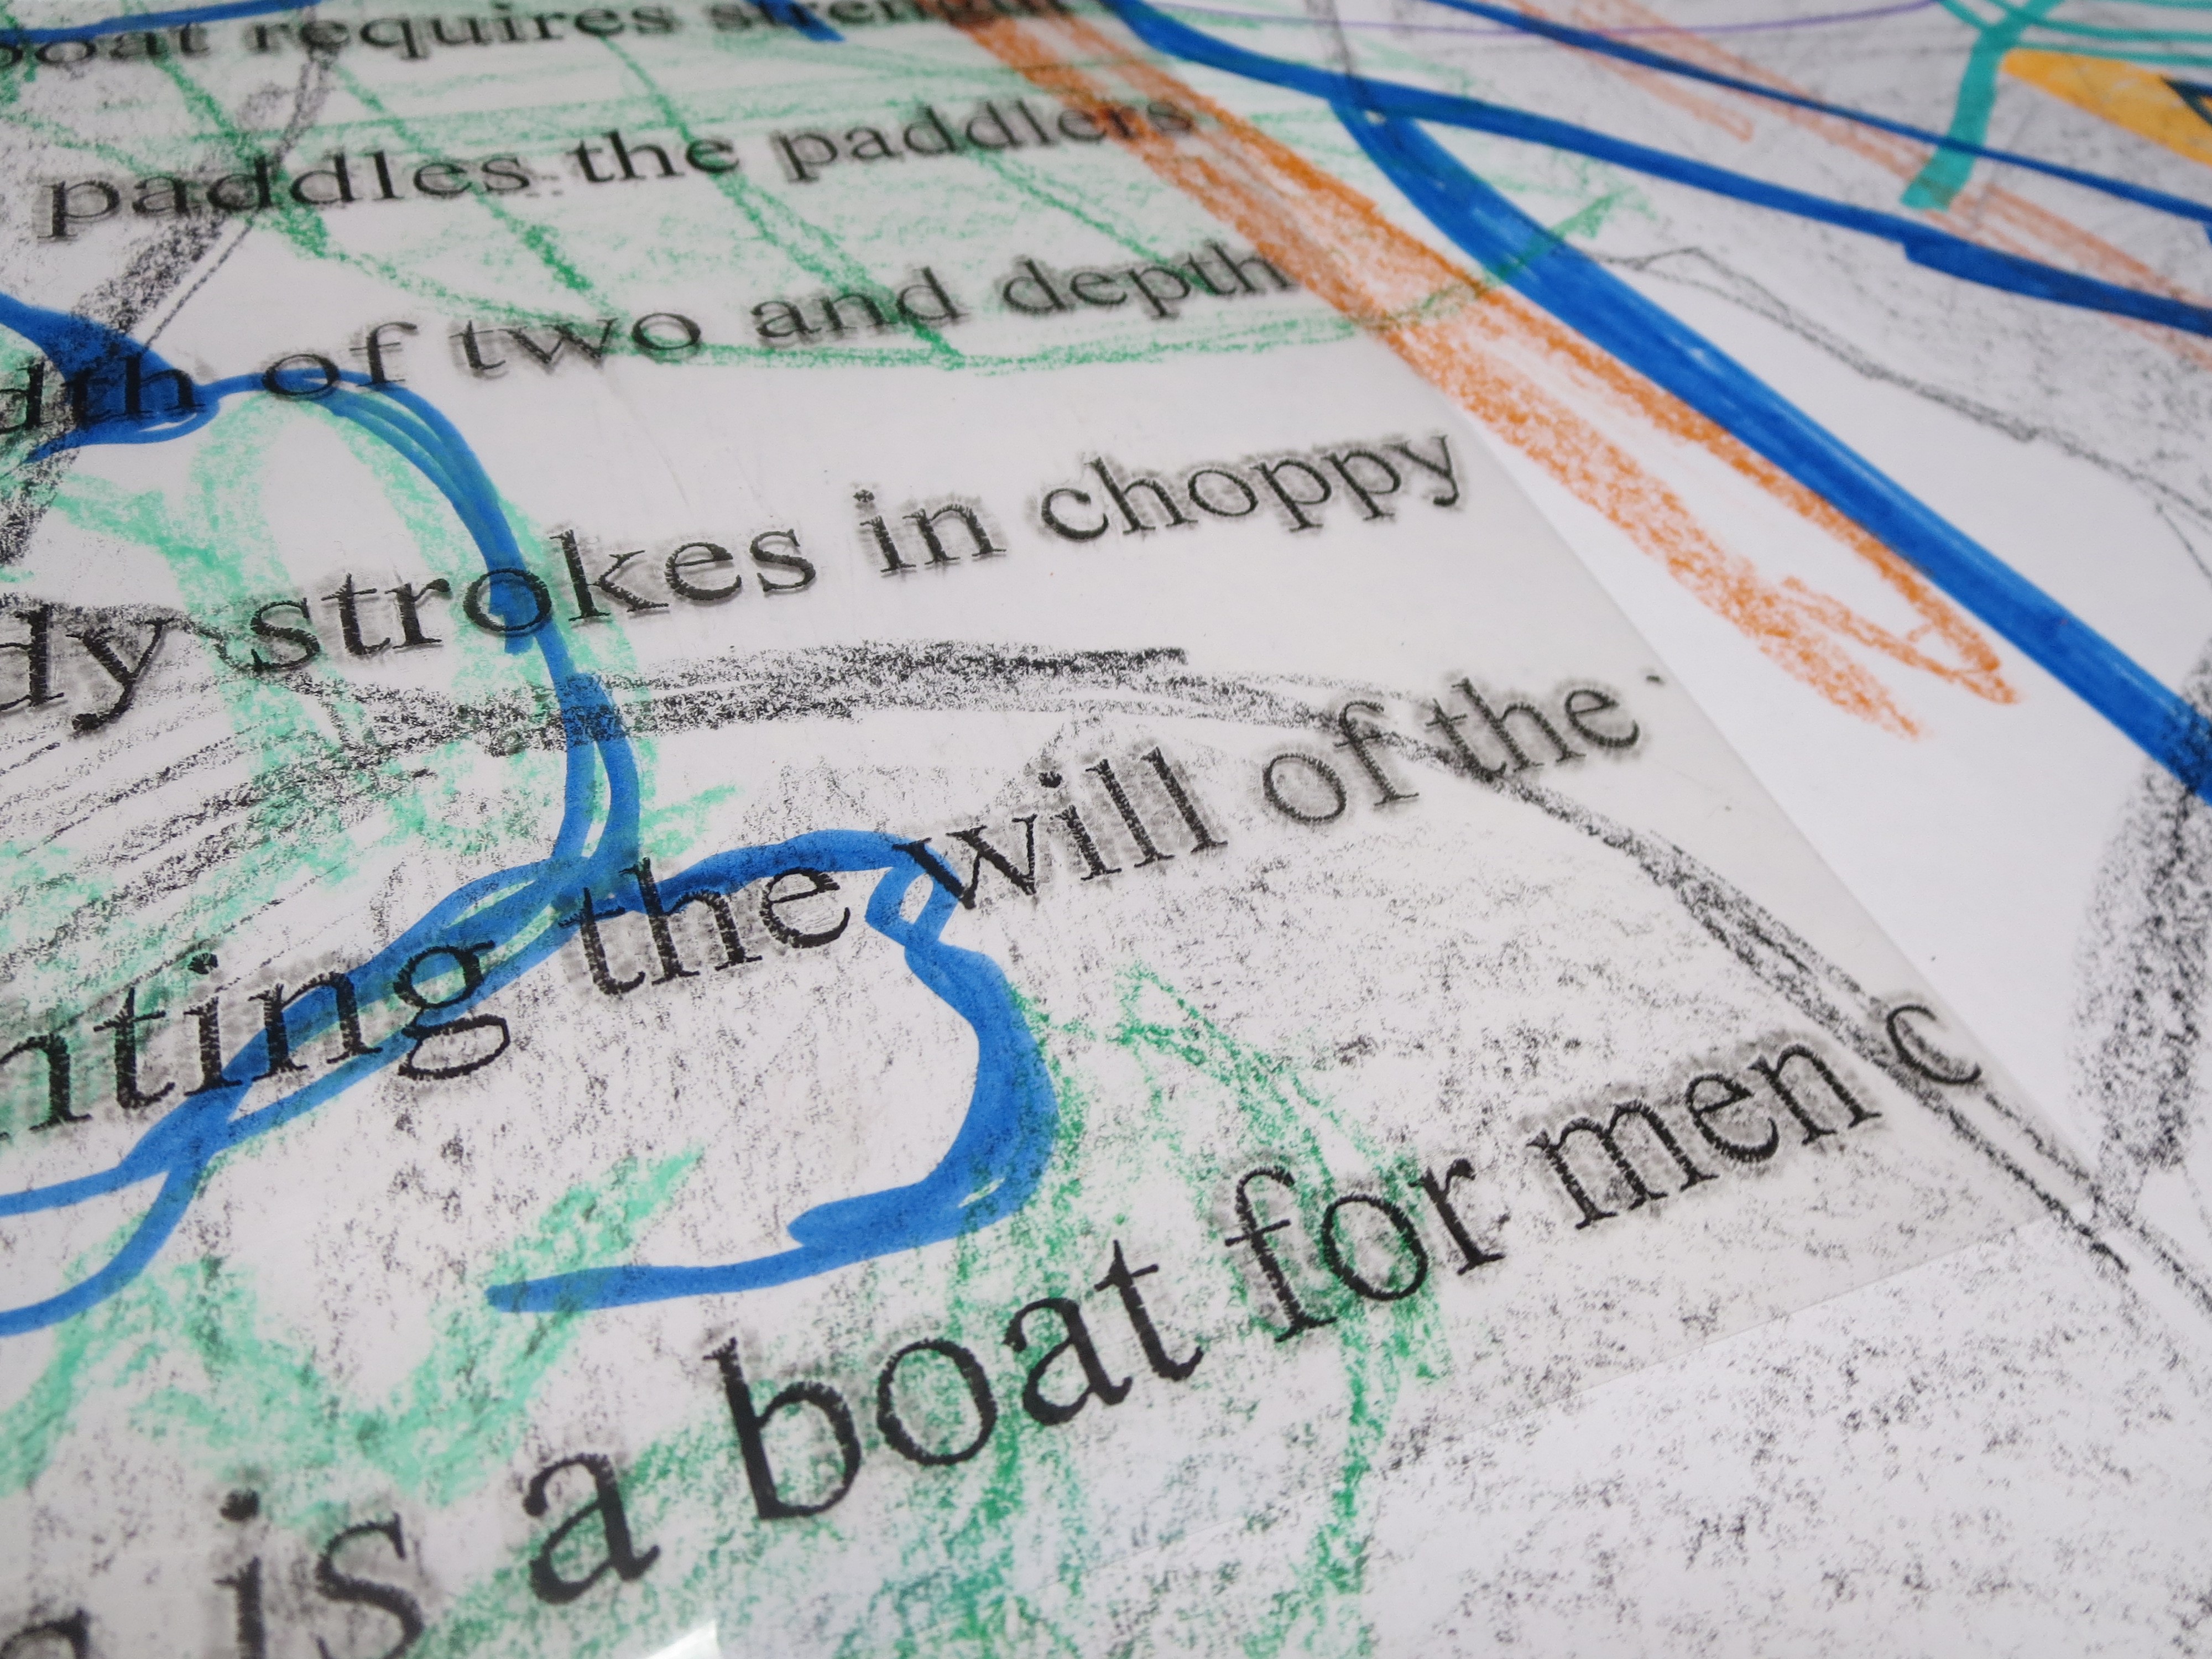 boat requires strength
paddles the paddlers
of two and depth
strokes in choppy
the will of the
is a boat for men c